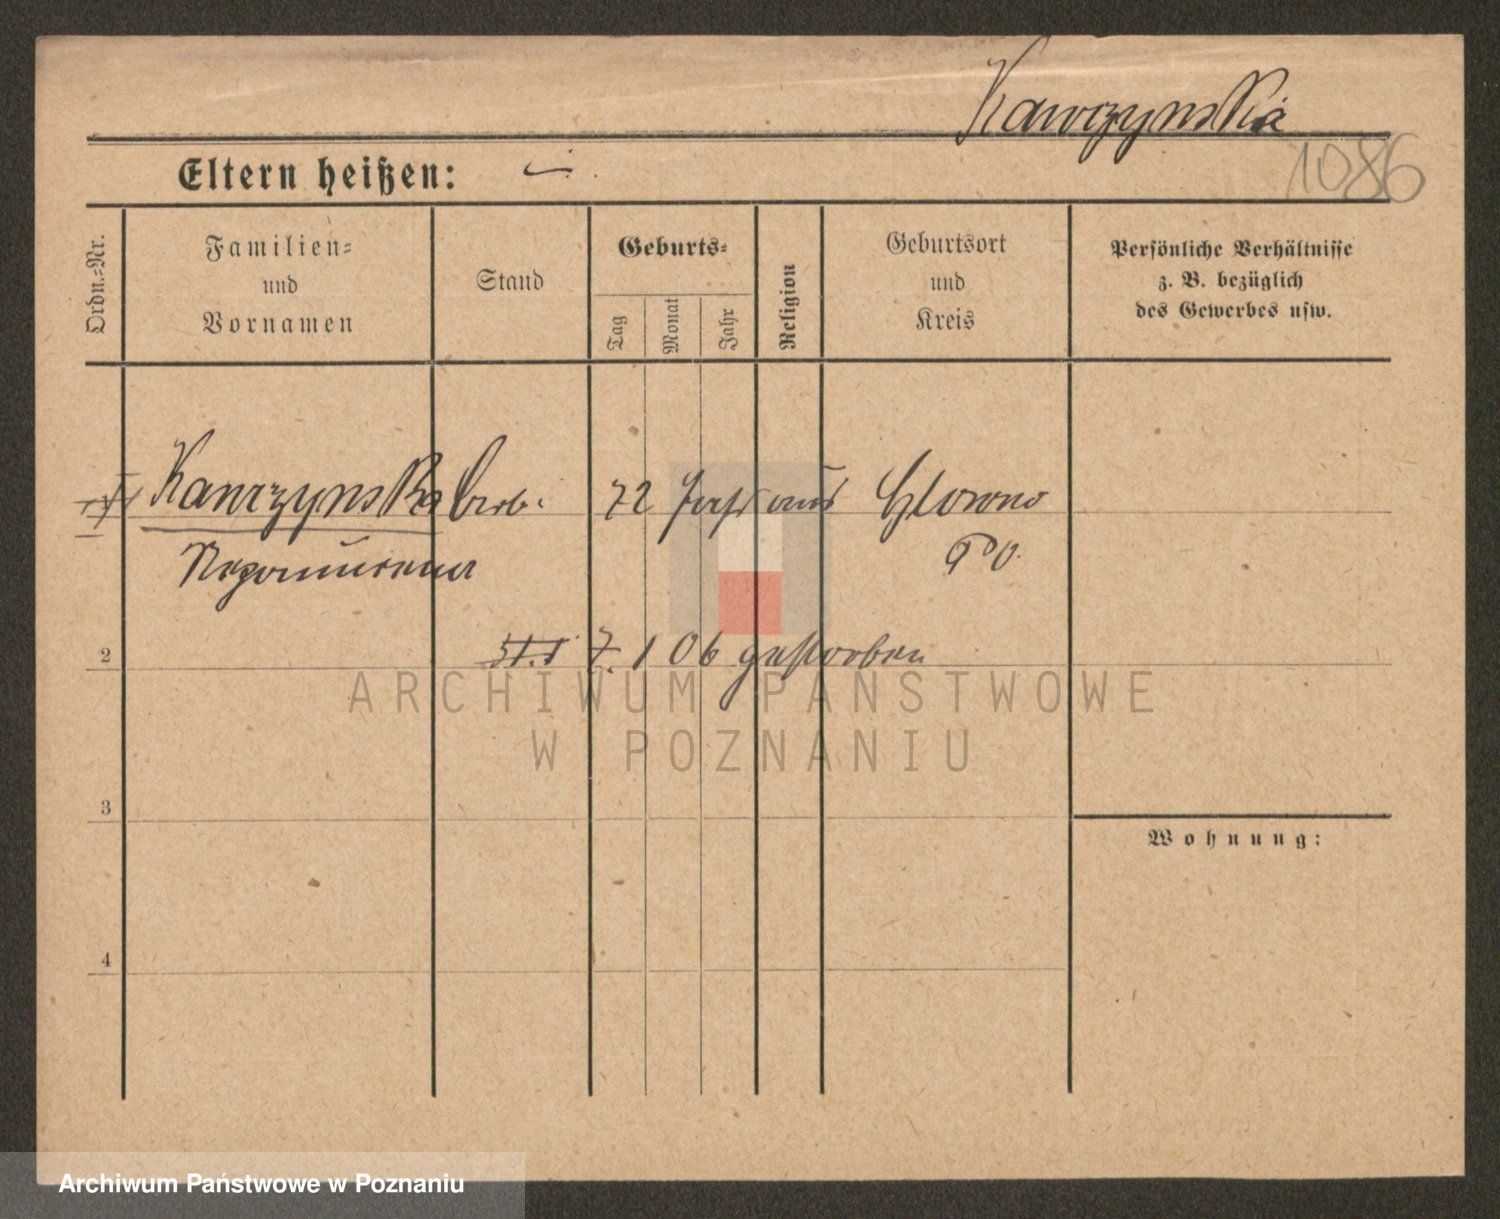 Kawczynska
1086
Eltern heißen: —.
Ordn.=Nr.
Familien=
und
Vornamen
Stand
Geburts=
Tag
Monat
Jahr
Religion
Geburtsort
und
Kreis
Persönliche Verhältnisse
z. B. bezüglich
des Gewerbes usw.
Kawczynska 72 Jahr aus Glowno
Nepomucena PO.
2 7. 1 06 gestorben
ARCHIWUM PAŃSTWOWE
W POZNANIU
3
Wohnung:
4
Archiwum Państwowe w Poznaniu